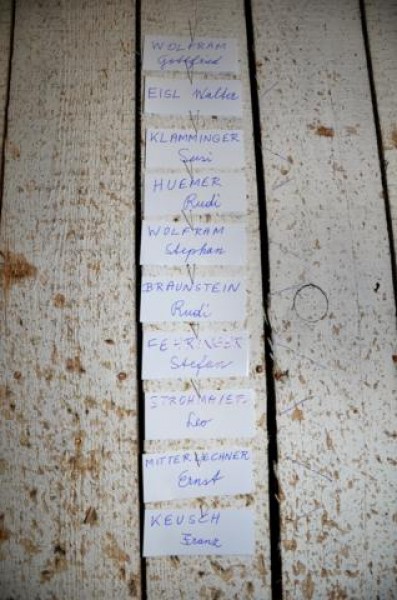 WOLFRAM
Gottfried
EIGL Walter
KLAMMINGER
Susi
HUEMER
Rudi
WOLFRAM
Stephan
BRAUNSTEIN
Rudi
FEHRINGER
Stefan
STROHMAIER
Leo
MITTERLECHNER
Ernst
KEUSCH
Franz